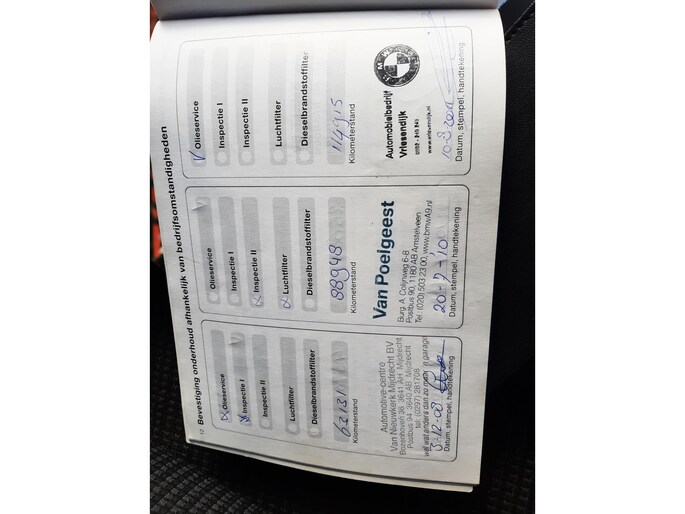 12 Bevestiging onderhoud afhankelijk van bedrijfsomstandigheden
Olieservice
Inspectie I
Inspectie II
Luchtfilter
Dieselbrandstoffilter
62131
Kilometerstand
Automotive-centre
Van Nieuwkerk Mijdrecht BV
Bozenhoven 36, 3641 AH Mijdrecht
Postbus 94, 3640 AB Mijdrecht
tel: (0297) 281708
wel wat anders dan zo maar 'n garage
3-12-08
Datum, stempel, handtekening
Olieservice
Inspectie I
Inspectie II
Luchtfilter
Dieselbrandstoffilter
88948
Kilometerstand
Van Poelgeest
Burg. A. Colijnweg 6-8
Postbus 90, 1180 AB Amstelveen
Tel. (020) 503 23 00, www.bmwA9.nl
20-9-10
Datum, stempel, handtekening
Olieservice
Inspectie I
Inspectie II
Luchtfilter
Dieselbrandstoffilter
114315
Kilometerstand
BMW
Automobielbedrijf
Vriesendijk
Datum, stempel, handtekening